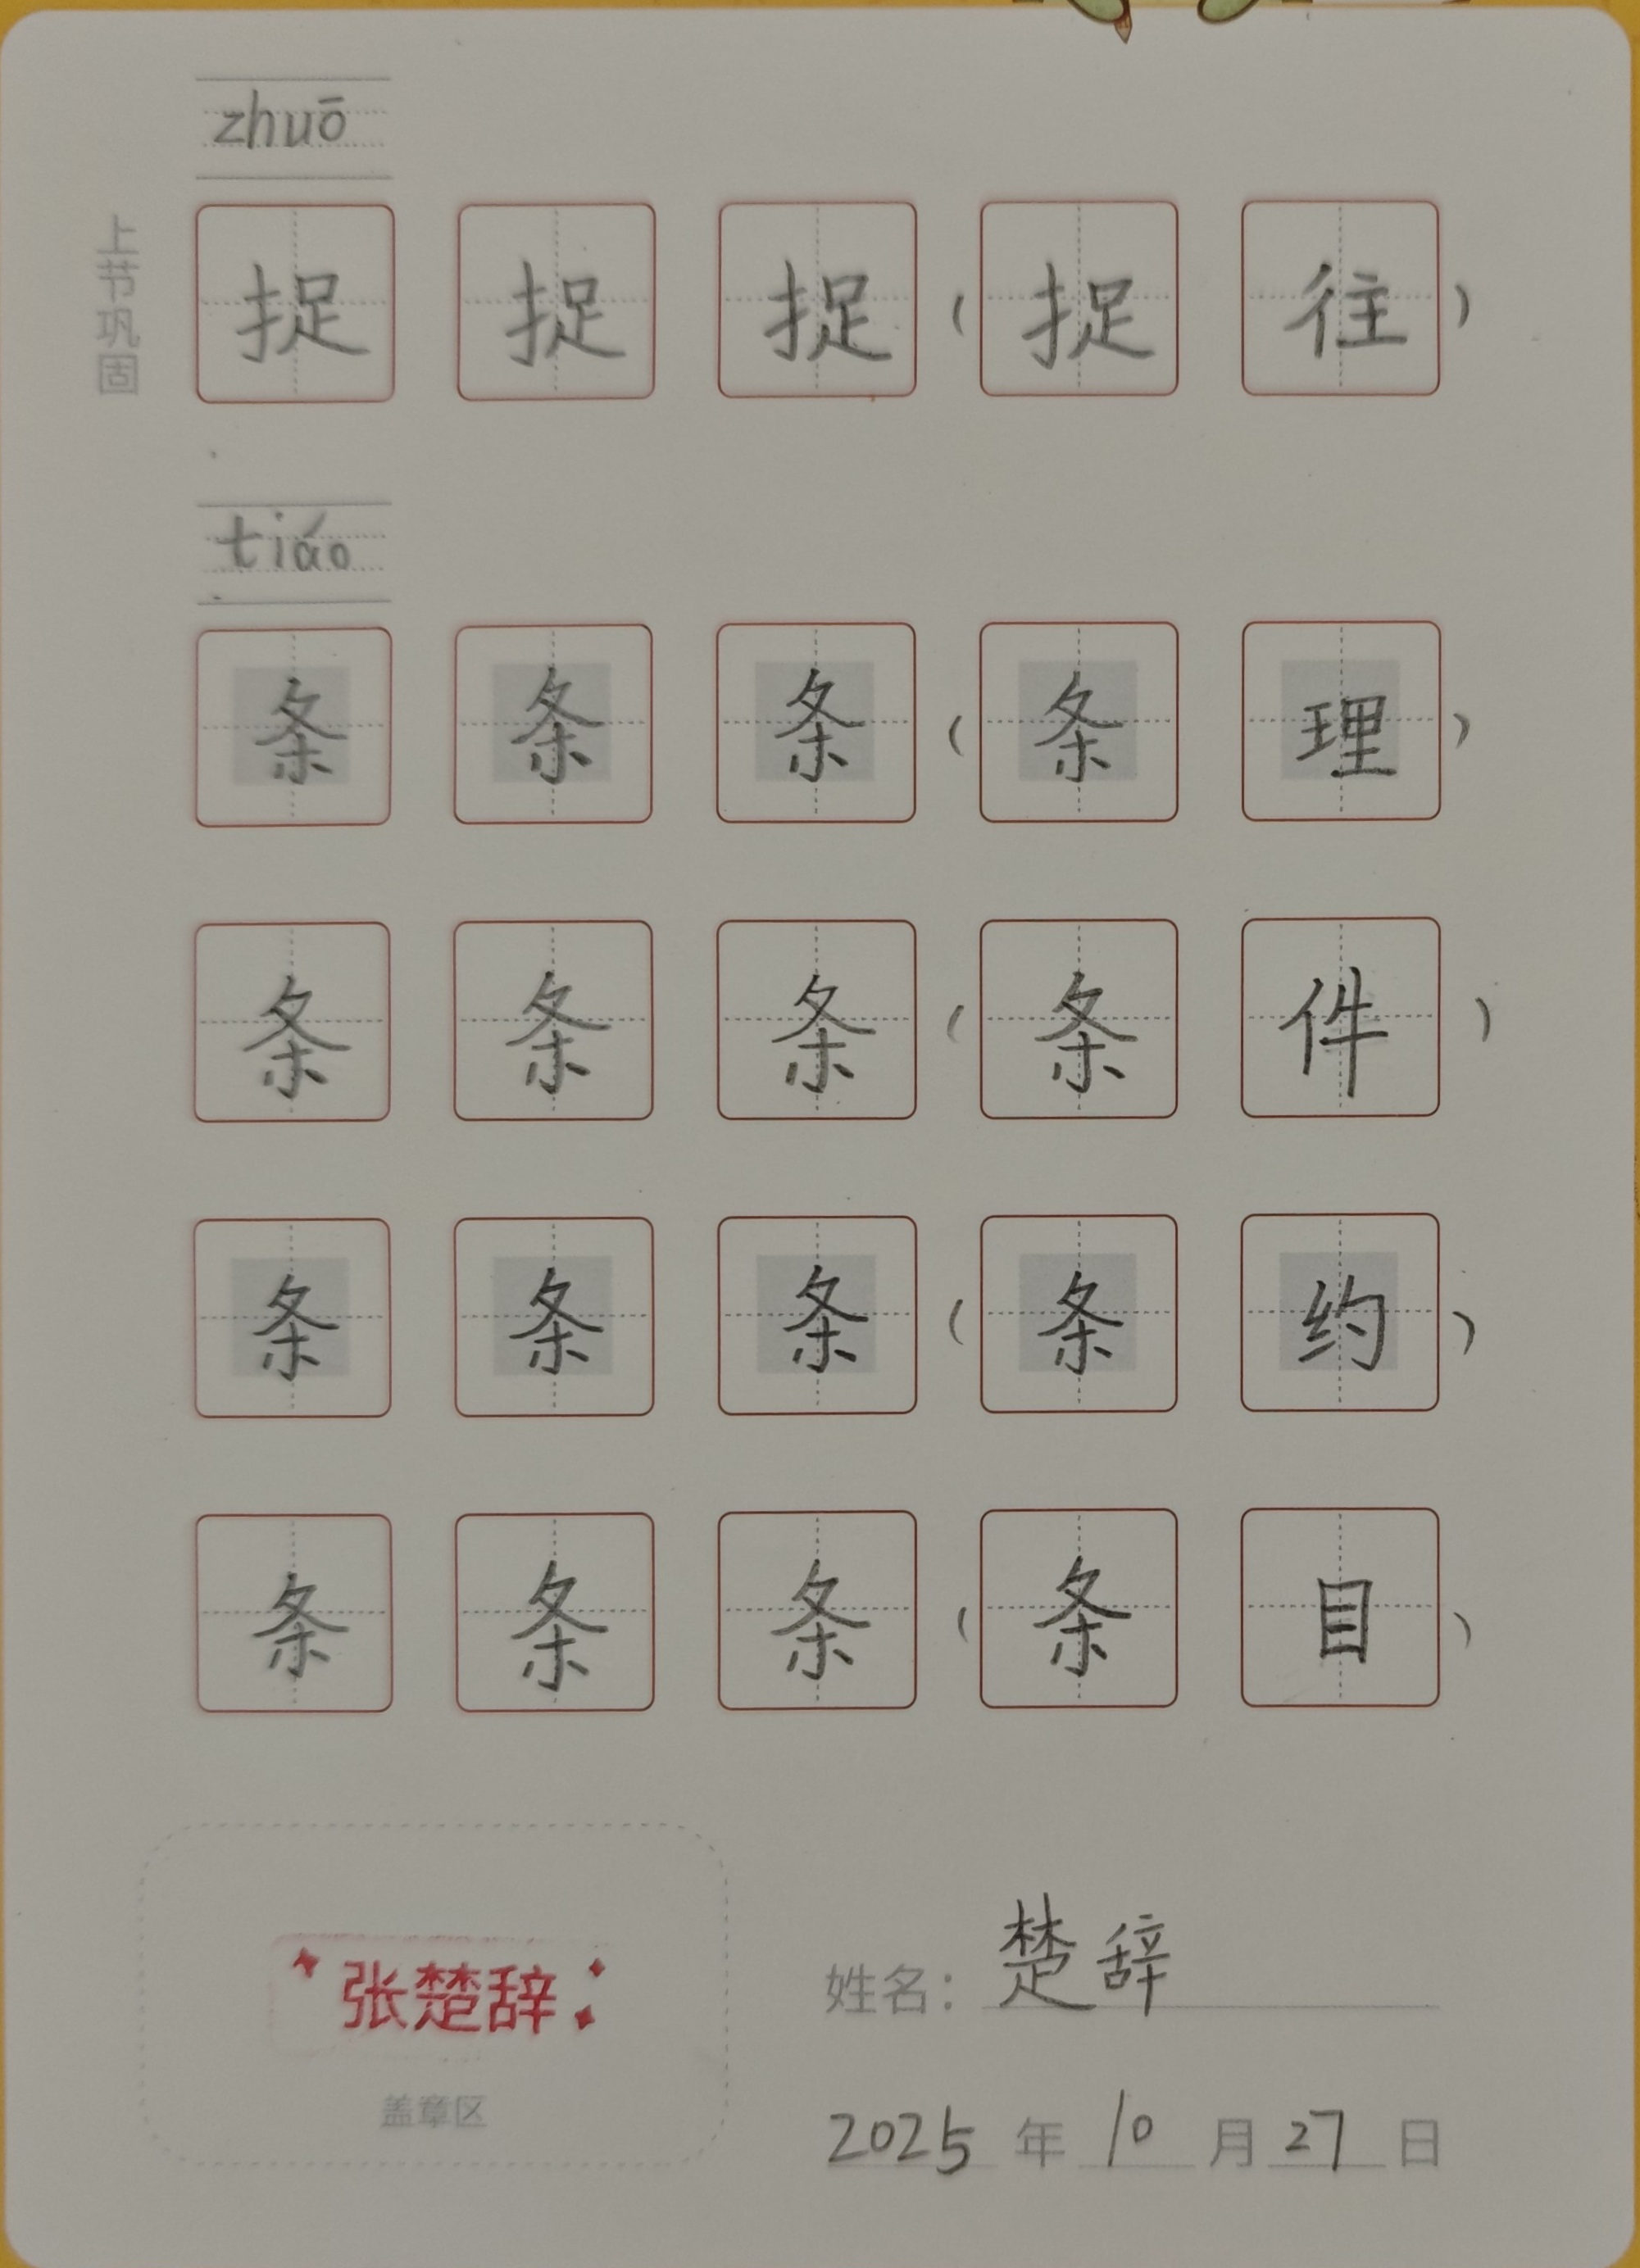 zhuō
上节巩固
捉 捉 捉 (捉 往)
tiáo
条 条 条 (条 理)
条 条 条 (条 件)
条 条 条 (条 约)
条 条 条 (条 目)
张楚辞
盖章区
姓名: 楚辞
2025 年 10 月 27 日